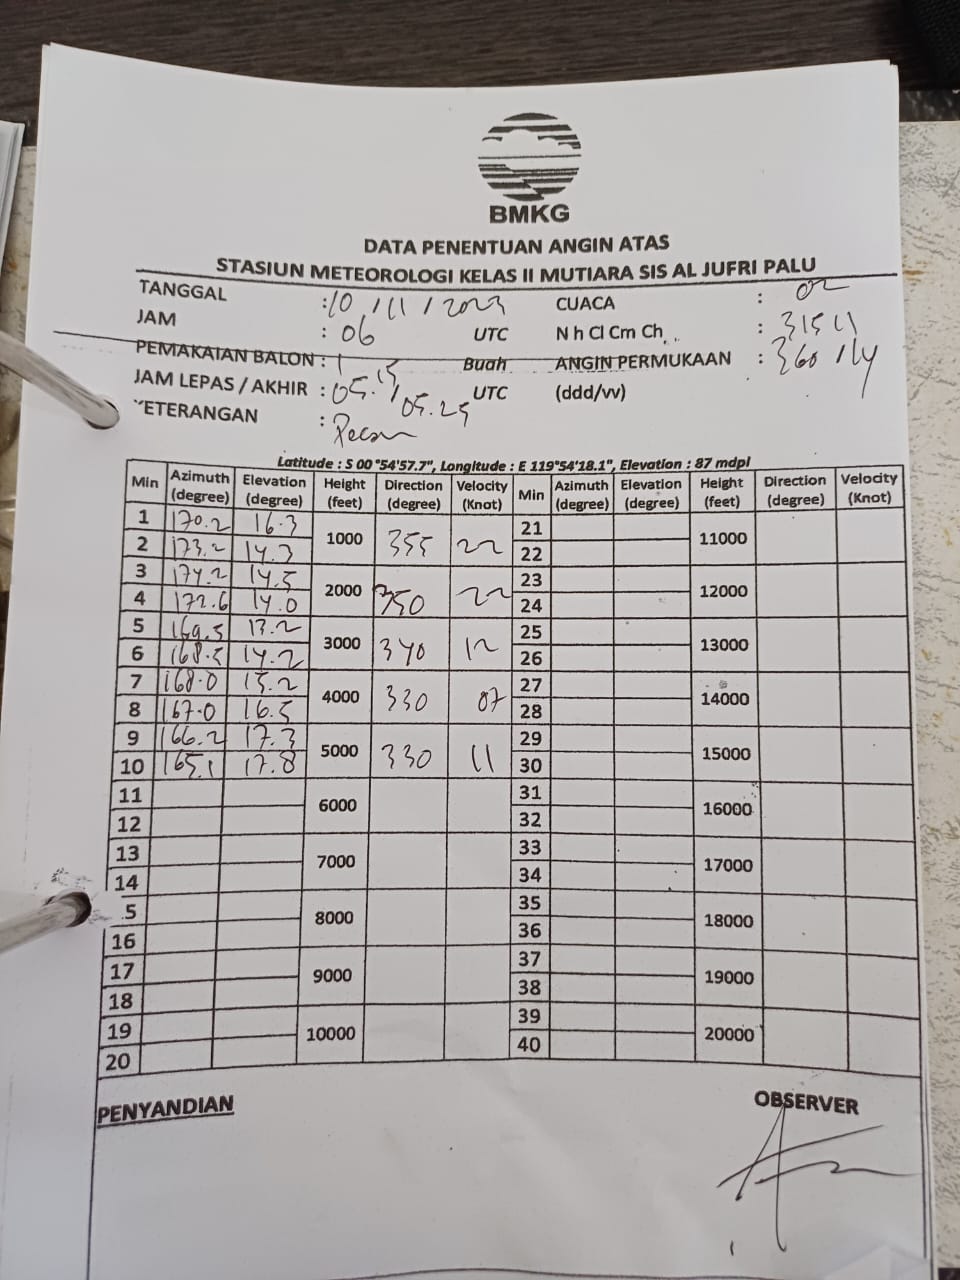 BMKG
DATA PENENTUAN ANGIN ATAS
STASIUN METEOROLOGI KELAS II MUTIARA SIS AL JUFRI PALU
TANGGAL : 10 / 11 / 2023 CUACA : 02
JAM : 06 UTC N h Cl Cm Ch : 31511
PEMAKAIAN BALON : 1 Buah ANGIN PERMUKAAN : 360 / 14
JAM LEPAS / AKHIR : 05.15 / 05.25 UTC (ddd/vv)
KETERANGAN : Pecah
Latitude : S 00 °54'57.7", Longitude : E 119°54'18.1", Elevation : 87 mdpl
Min Azimuth (degree) Elevation (degree) Height (feet) Direction (degree) Velocity (Knot) Min Azimuth (degree) Elevation (degree) Height (feet) Direction (degree) Velocity (Knot)
1 170.2 16.3 1000 355 22 21 11000
2 173.2 14.3 22
3 174.2 14.5 2000 350 22 23 12000
4 172.6 14.0 24
5 169.5 13.2 3000 340 12 25 13000
6 168.5 14.2 26
7 168.0 15.2 4000 330 07 27 14000
8 167.0 16.5 28
9 166.2 17.3 5000 330 11 29 15000
10 165.1 17.8 30
11 6000 31 16000
12 32
13 7000 33 17000
14 34
15 8000 35 18000
16 36
17 9000 37 19000
18 38
19 10000 39 20000
20 40
PENYANDIAN OBSERVER